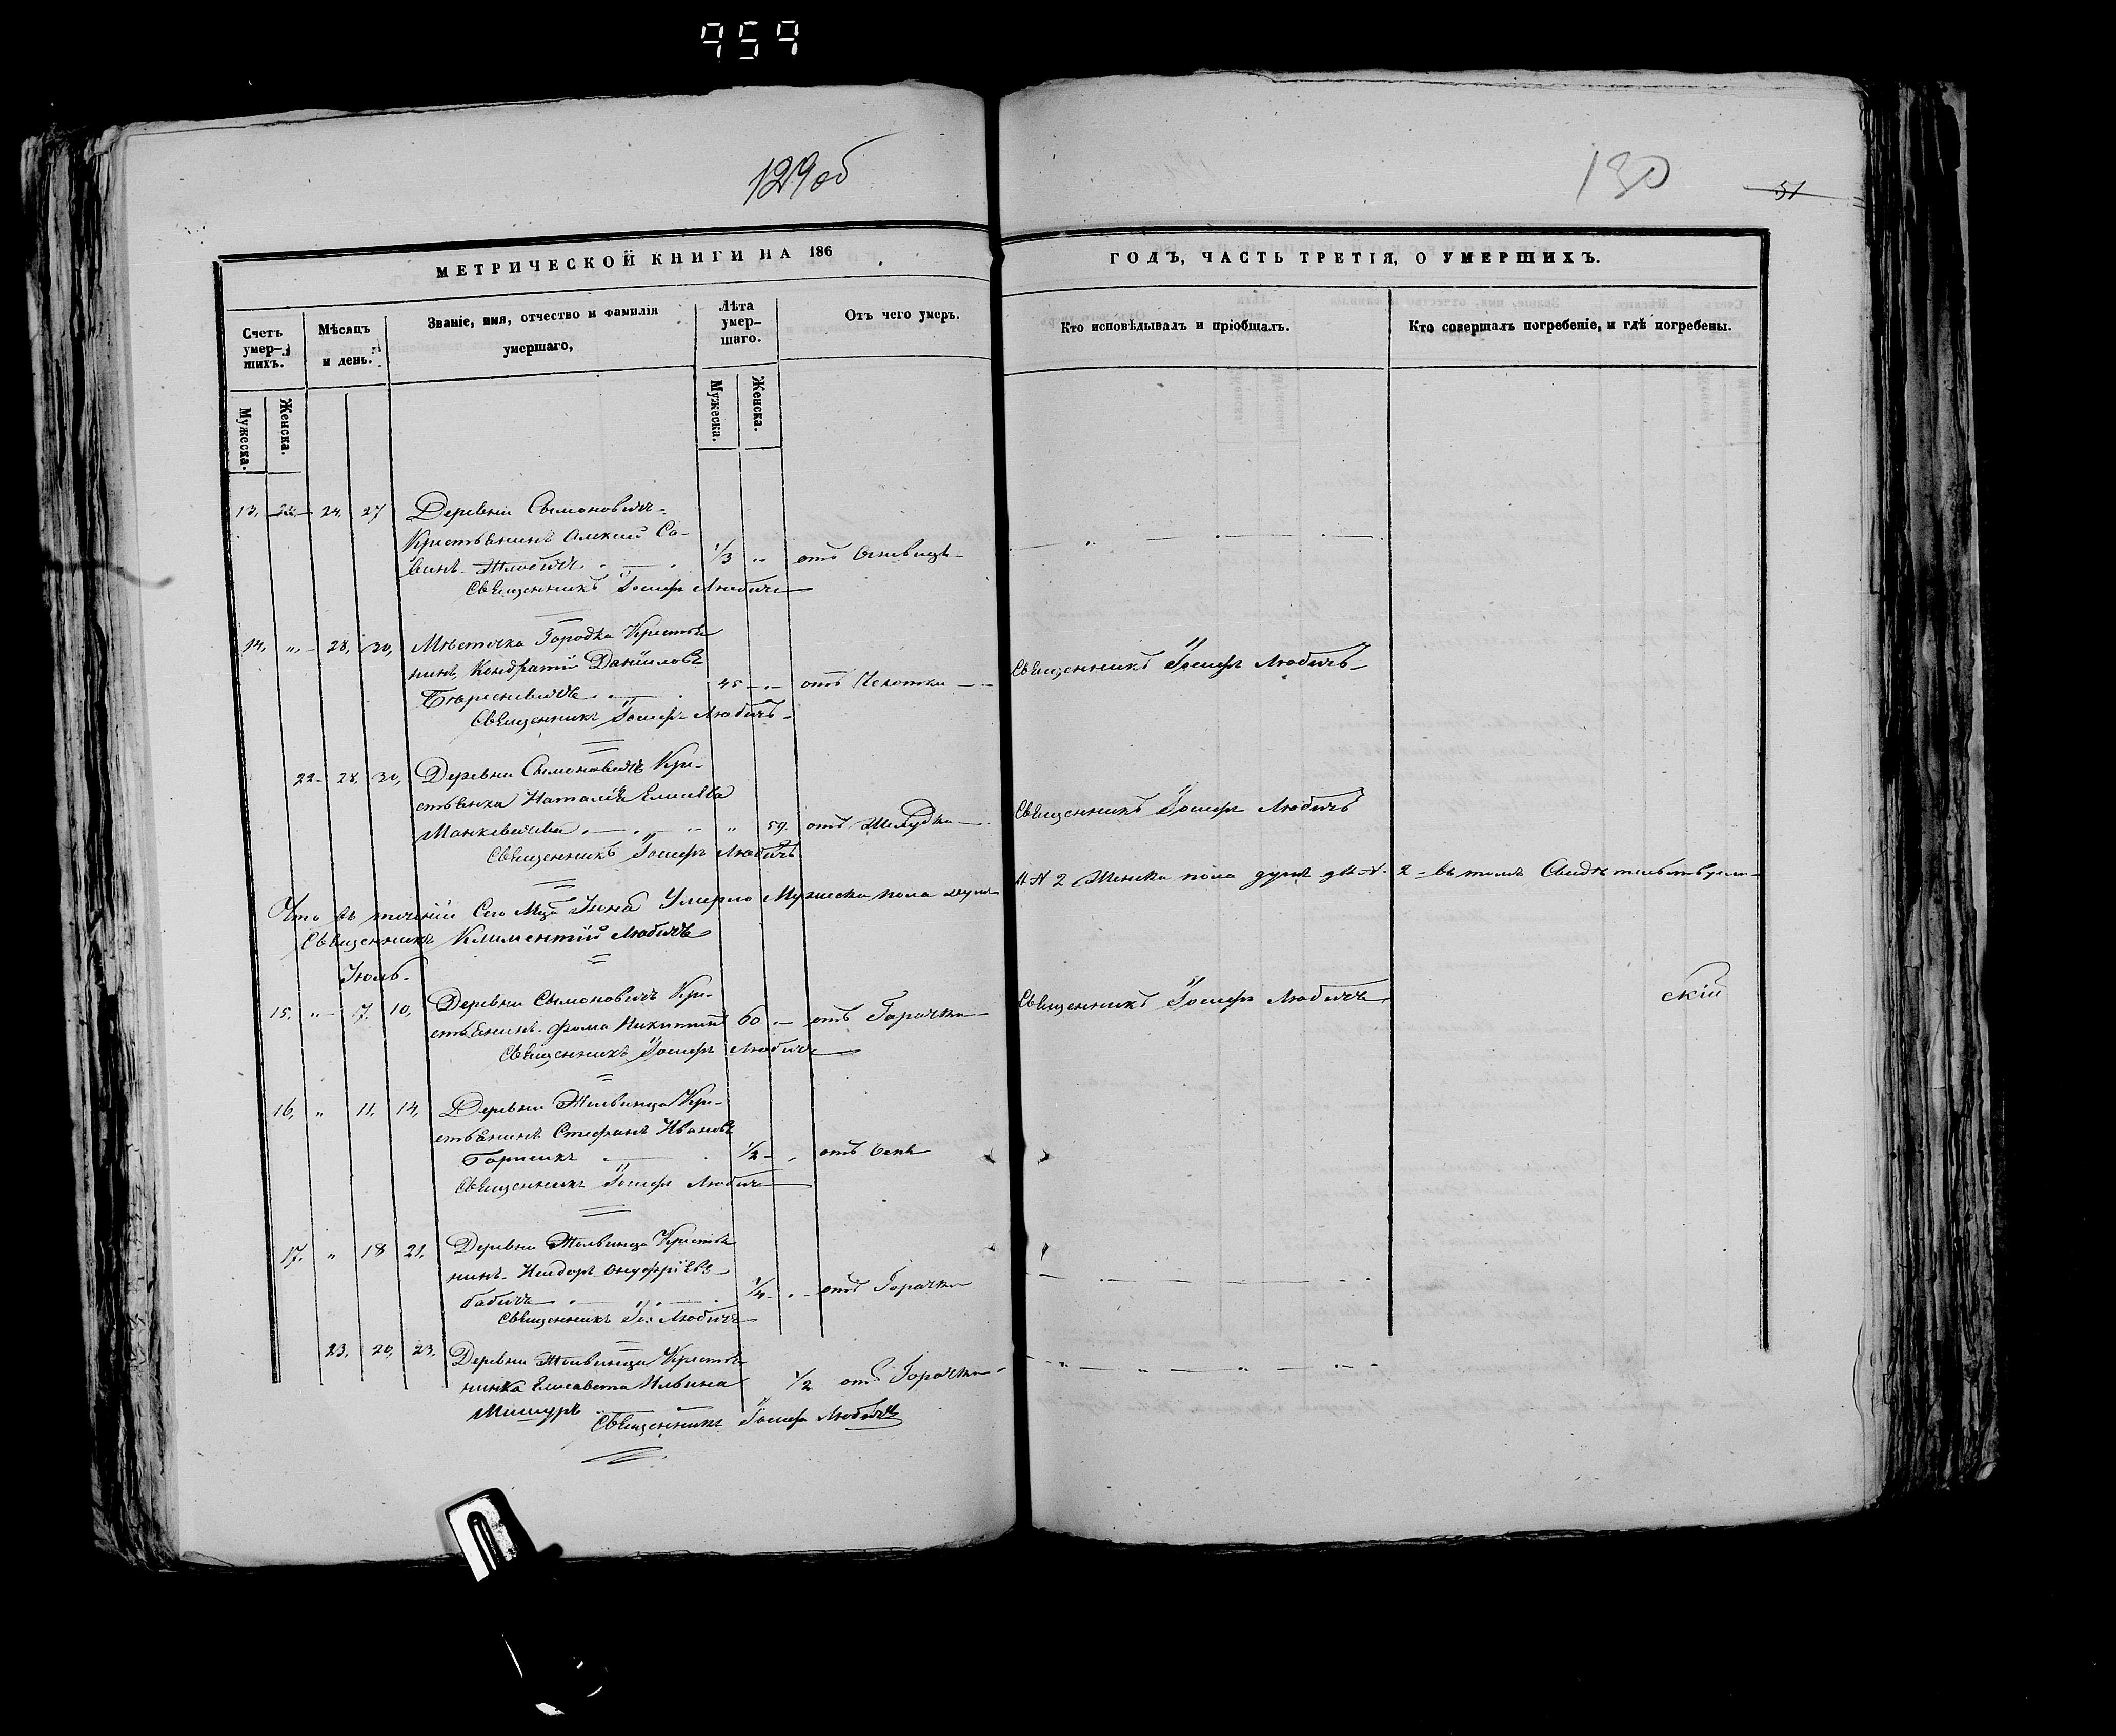 959
129об
130
51
МЕТРИЧЕСКОЙ КНИГИ НА 186
ГОДЪ, ЧАСТЬ ТРЕТІЯ, О УМЕРШИХЪ.
Счетъ умер-шихъ.
Мѣсяцъ и день.
Званіе, имя, отчество и фамилія
умершаго,
Лѣта умер-шаго.
Отъ чего умеръ.
Кто исповѣдывалъ и пріобщалъ.
Кто совершалъ погребеніе, и гдѣ погребены.
Мужеска.
Женска.
Мужеска.
Женска.
13. 24. 27 Деревни Сымоновичъ
Крестьянинъ Са-
винъ 1/3 отъ
Священникъ Іосифъ Любичъ
14. 28. 30. Мѣстечка Городка Крестья
нинъ Кондратій Даніиловъ
45 отъ Сухотки Священникъ Іосифъ Любичъ
Священникъ Іосифъ Любичъ
22 28. 30. Деревни Сымоновичъ Кре-
стьянка Наталія Елисѣева
Манкевичева 59. отъ Желудка Священникъ Іосифъ Любичъ
Священникъ Іосифъ Любичъ
Что въ теченіи Сего Мца Іюня Умерло Мужеска пола душъ 2 Женска пола душъ 2 въ томъ Свидѣтельствуемъ
Священникъ Климентій Любичъ
Іюль.
15. 7. 10. Деревни Сымоновичъ Кре-
стьянинъ Фома Никитинъ 60 отъ Горячки Священникъ Іосифъ Любичъ
скій
Священникъ Іосифъ Любичъ
16. 11. 14. Деревни Кре-
стьянинъ Стефанъ Ивановъ
1/2 отъ
Священникъ Іосифъ Любичъ
17. 18 21. Деревни Крестья
нинъ Исидоръ Онуфріевъ
Бабичъ 1/4 отъ Горячки
Священникъ Іос: Любичъ
23. 20. 23. Деревни Крестья
нинка Елисавета Ильина
Мишуръ 1/2 отъ Горячки
Священникъ Іосифъ Любичъ